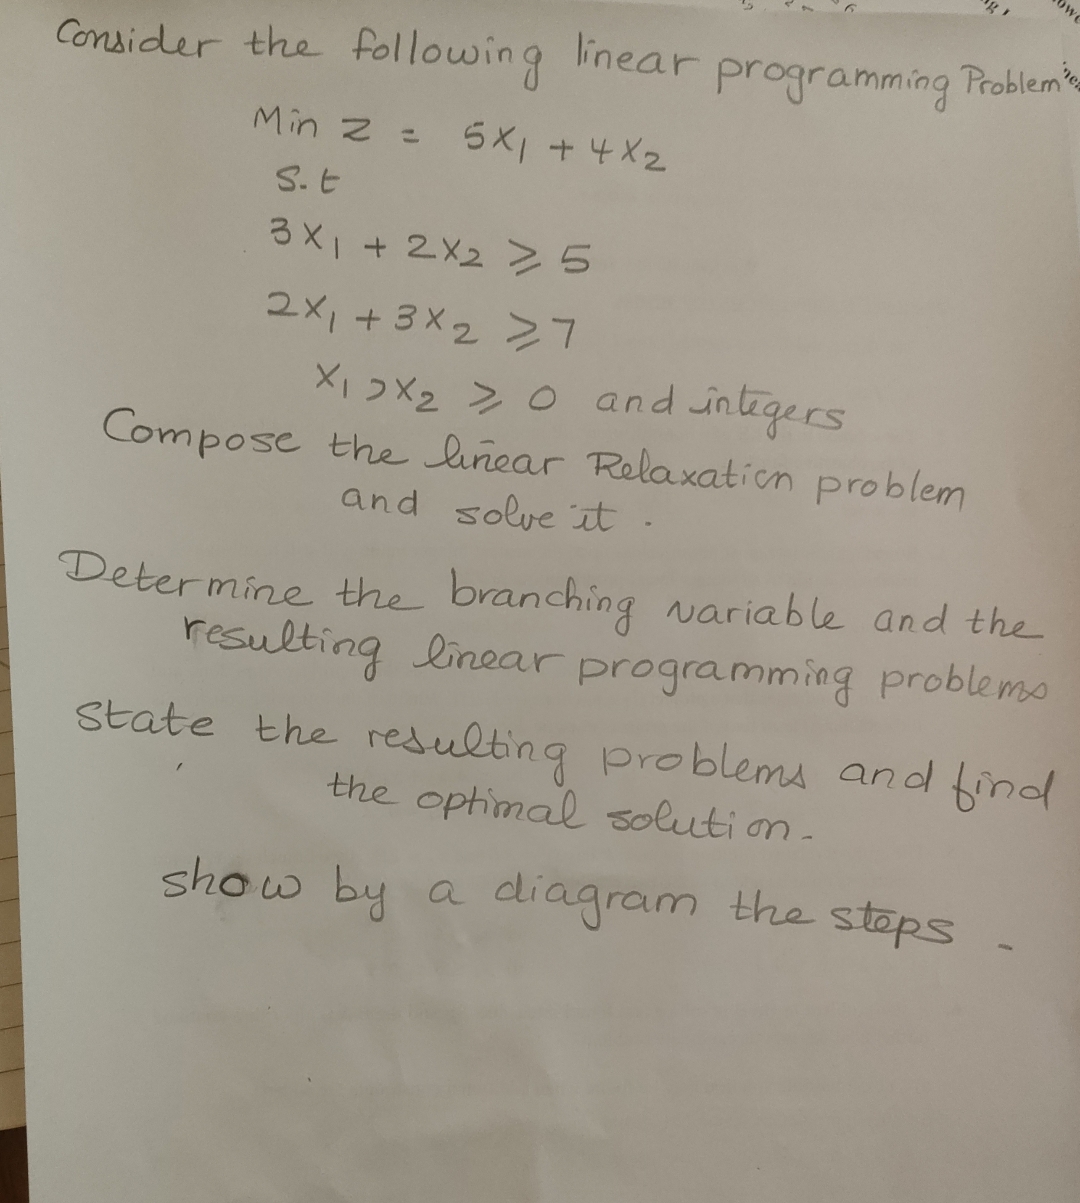 Consider the following linear programming Problem
Min Z = 5X1 + 4X2
S.t
3X1 + 2X2 ⩾ 5
2X1 + 3X2 ⩾ 7
X1, X2 ⩾ 0 and integers
Compose the linear Relaxation problem
and solve it.
Determine the branching variable and the
resulting linear programming problems
state the resulting problems and find
the optimal solution.
show by a diagram the steps.